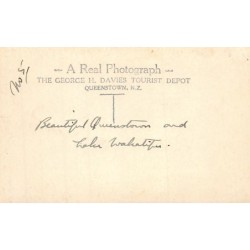 No 51
- A Real Photograph -
THE GEORGE H. DAVIES TOURIST DEPOT
QUEENSTOWN, N.Z.
Beautiful Queenstown and
Lake Wakatipu.